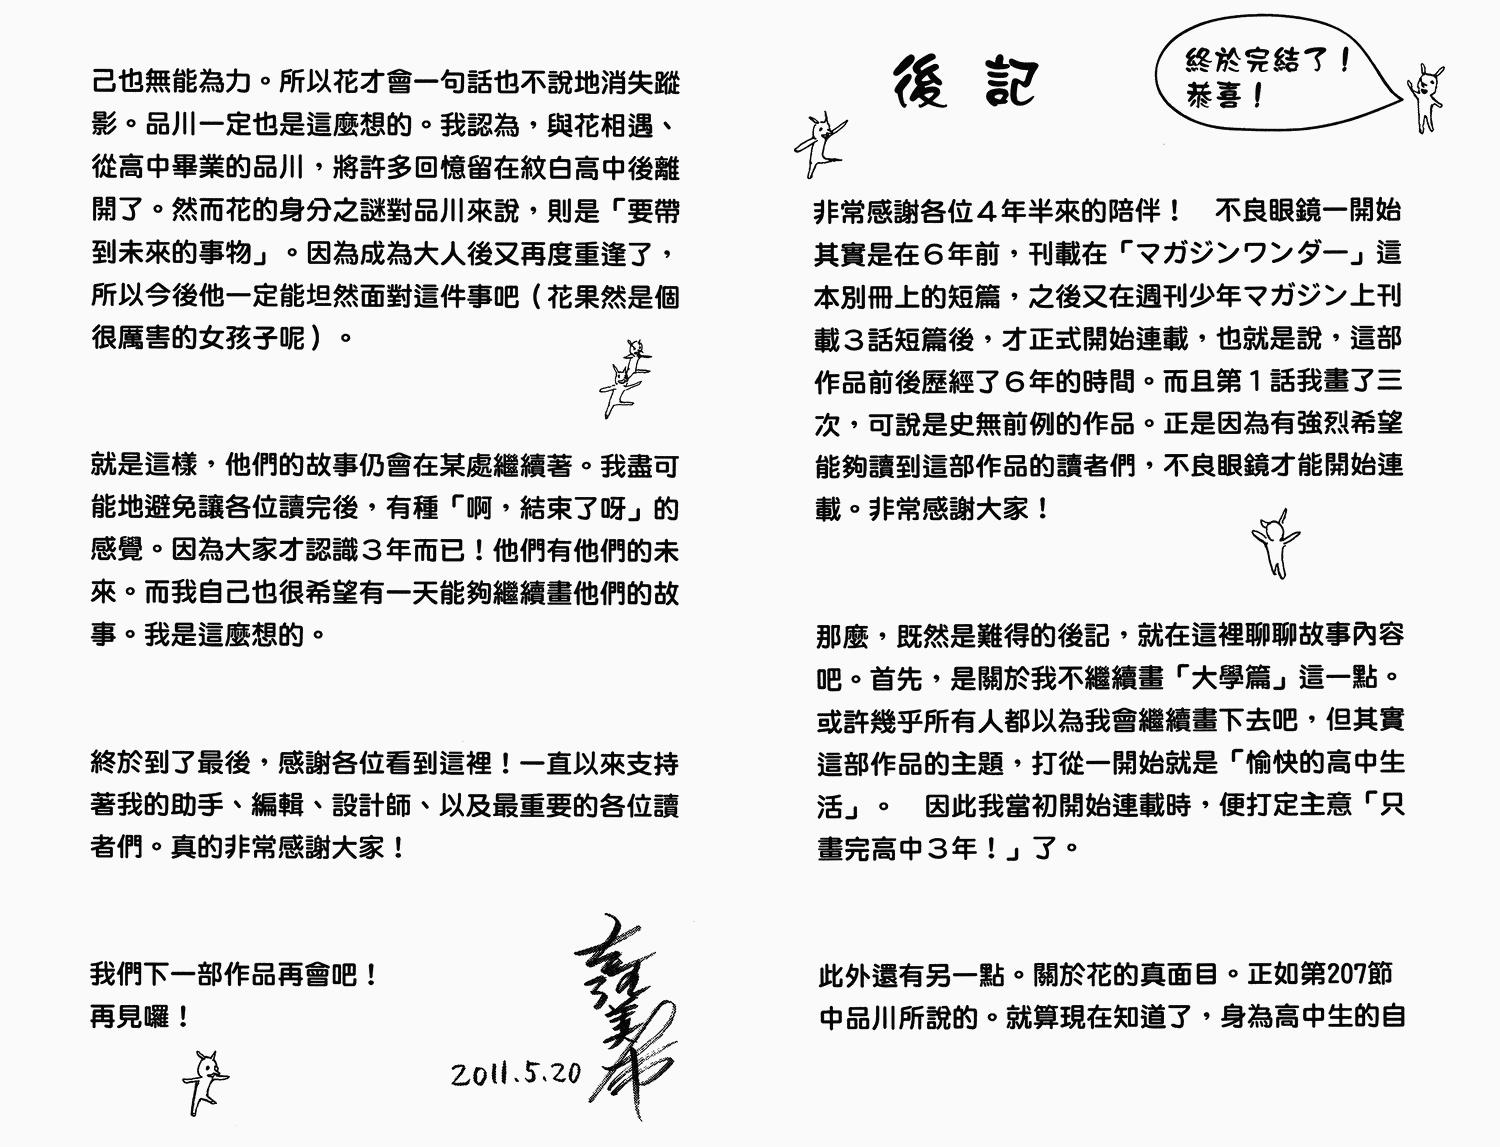 後記
終於完結了！
恭喜！
非常感謝各位４年半來的陪伴！　不良眼鏡一開始
其實是在６年前，刊載在「マガジンワンダー」這
本別冊上的短篇，之後又在週刊少年マガジン上刊
載３話短篇後，才正式開始連載，也就是說，這部
作品前後歷經了６年的時間。而且第１話我畫了三
次，可說是史無前例的作品。正是因為有強烈希望
能夠讀到這部作品的讀者們，不良眼鏡才能開始連
載。非常感謝大家！
那麼，既然是難得的後記，就在這裡聊聊故事內容
吧。首先，是關於我不繼續畫「大學篇」這一點。
或許幾乎所有人都以為我會繼續畫下去吧，但其實
這部作品的主題，打從一開始就是「愉快的高中生
活」。　因此我當初開始連載時，便打定主意「只
畫完高中３年！」了。
此外還有另一點。關於花的真面目。正如第207節
中品川所說的。就算現在知道了，身為高中生的自
己也無能為力。所以花才會一句話也不說地消失蹤
影。品川一定也是這麼想的。我認為，與花相遇、
從高中畢業的品川，將許多回憶留在紋白高中後離
開了。然而花的身分之謎對品川來說，則是「要帶
到未來的事物」。因為成為大人後又再度重逢了，
所以今後他一定能坦然面對這件事吧（花果然是個
很厲害的女孩子呢）。
就是這樣，他們的故事仍會在某處繼續著。我盡可
能地避免讓各位讀完後，有種「啊，結束了呀」的
感覺。因為大家才認識３年而已！他們有他們的未
來。而我自己也很希望有一天能夠繼續畫他們的故
事。我是這麼想的。
終於到了最後，感謝各位看到這裡！一直以來支持
著我的助手、編輯、設計師、以及最重要的各位讀
者們。真的非常感謝大家！
我們下一部作品再會吧！
再見囉！
2011.5.20